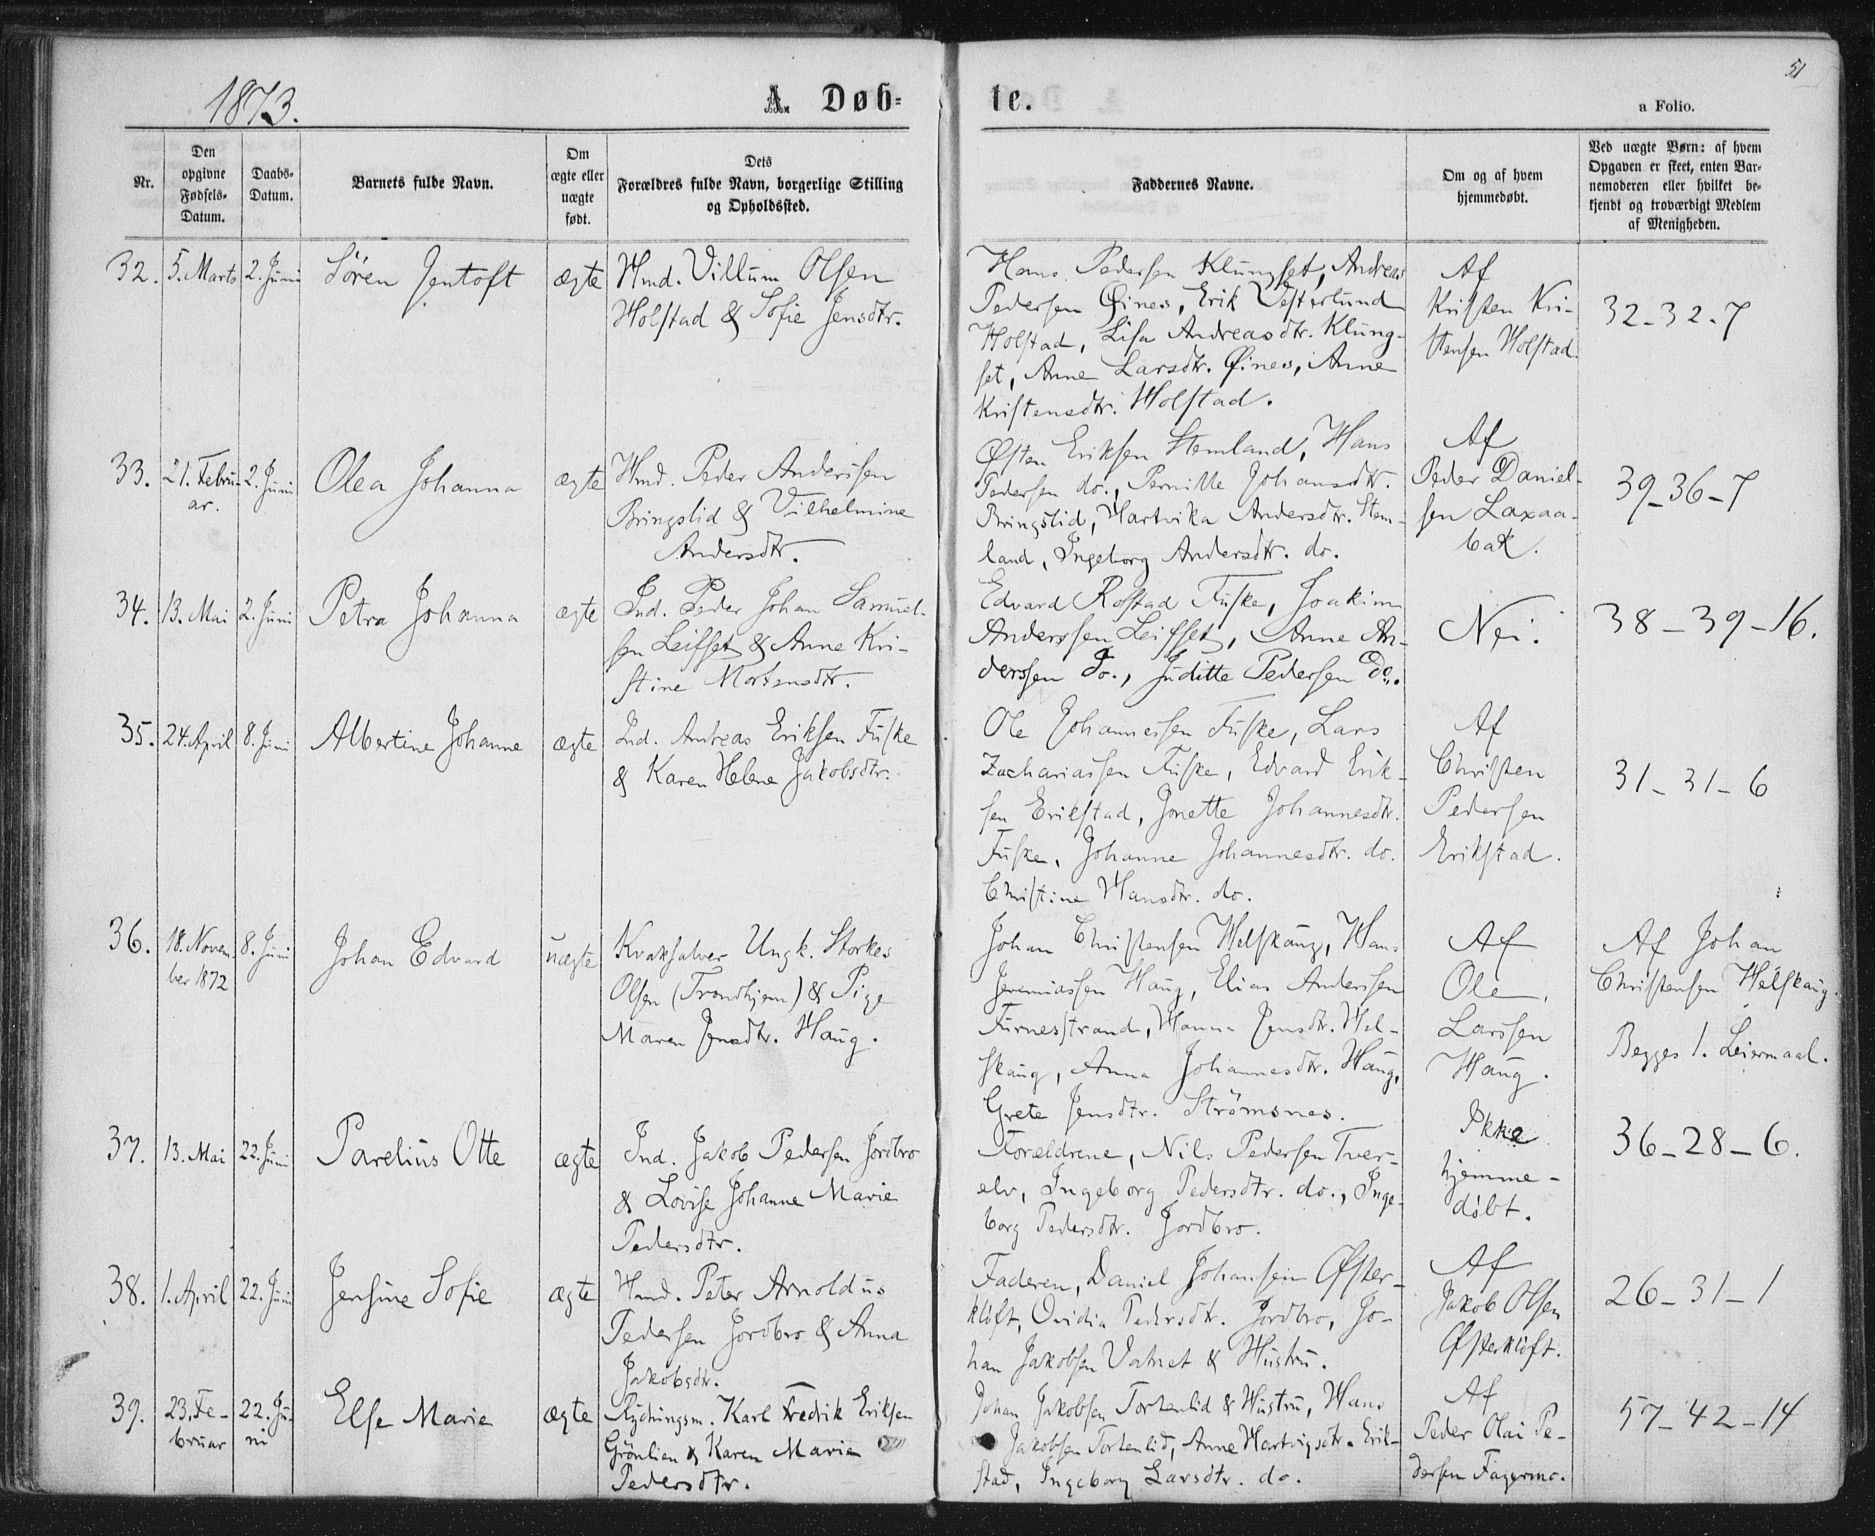 51
1873.
A. Døb-
te.
a Folio.
Nr.
Den
opgivne
Fødsels-
Datum.
Daabs-
Datum.
Barnets fulde Navn.
Om
ægte eller
uægte
født.
Dets
Forældres fulde Navn, borgerlige Stilling
og Opholdssted.
Faddernes Navne.
Om og af hvem
hjemmedøbt.
Ved uægte Børn: af hvem
Opgaven er skeet, enten Bar-
nemoderen eller hvilket be-
kjendt og troværdigt Medlem
af Menigheden.
32.
5. Marts
2. Juni
Sören Jentoft
ægte
Hmd. Villum Olsen
Holstad & Sofie Jensdtr.
Hans Pedersen Klungset, Andreas
Pedersen Øines, Erik Vesterlund
Holstad, Lisa Andreasdtr. Klung-
set, Anne Larsdtr. Øines, Anne
Kristensdtr. Holstad.
Af
Kristen Kri-
stensen Holstad.
32-32-7
33.
21. Febru-
ar.
2. Juni
Olea Johanna
ægte
Hmd. Peder Anderssen
Bringslid & Vilhelmine
Andersdtr.
Østen Eriksen Stemland, Hans
Pedersen do., Pernille Johansdtr.
Bringslid, Hartvika Andersdtr. Stem-
land, Ingeborg Andersdtr. do.
Af
Peder Daniel-
sen Laxaa-
bak.
39-36-7
34.
13. Mai
2. Juni
Petra Johanna
ægte
Ind. Peder Johan Samuel-
sen Leifset & Anne Kri-
stine Mortensdtr.
Edvard Rostad Fuske, Joakim
Anderssen Leifset, Anne An-
derssen Do., Juditte Pedersen Do.
Nei.
38-39-16.
35.
24. April
8. Juni
Albertine Johanne
ægte
Ind. Andreas Eriksen Fuske
& Karen Helene Jakobsdtr.
Ole Johannessen Fuske, Lars
Zachariassen Fuske, Edvard Erik-
sen Erikstad, Jonette Johannesdtr.
Fuske, Johanne Johannesdtr. do.
Christine Hansdtr. do.
Af
Christen
Pedersen
Erikstad.
31-31-6
36.
18. Novem-
ber 1872
8. Juni
Johan Edvard
uægte
Kvaksalver Ungk. Storkes
Olsen (Trondhjem) & Pige
Maren Jensdtr. Haug.
Johan Christensen Helskaug, Hans
Jeremiassen Haug, Elias Anderssen
Furnesstrand, Hanna Jensdtr. Hel-
skaug, Anna Johannesdtr. Haug,
Grete Jensdtr. Strömsnes.
Af
Ole
Larssen
Haug.
Af Johan
Christensen Helskaug.
Begges 1. Leiermaal.
37.
13. Mai
22. Juni
Parelius Otte
ægte
Ind. Jakob Pedersen Jordbro
& Lovise Johanne Marie
Pedersdtr.
Forældrene, Nils Pedersen Tver-
elv, Ingeborg Pedersdtr. do., Inge-
borg Pedersdtr. Jordbro.
Ikke
hjemme-
döbt.
36-28-6.
38.
1. April
22. Juni
Jensine Sofie
ægte
Hmd. Peter Arnoldus
Pedersen Jordbro & Anna
Jakobsdtr.
Faderen, Daniel Johansen Øster-
klöft, Ovidia Pedersdtr. Jordbro, Jo-
han Jakobsen Vatnet & Hustru.
Af
Jakob Olsen
Østerklöft.
26-31-1
39.
23. Fe-
bruar
22. Ju-
ni
Else Marie
ægte
Rydningsm. Karl Fredrik Eriksen
Grönlien & Karen Marie
Pedersdtr.
Johan Jakobsen Tortenlid & Hustru, Hans
Jakobsen Tortenlid, Anne Hartvigsdtr. Erik-
stad, Ingeborg Larsdtr. do.
Af
Peder Olai Pe-
dersen Fagermo.
57-42-14